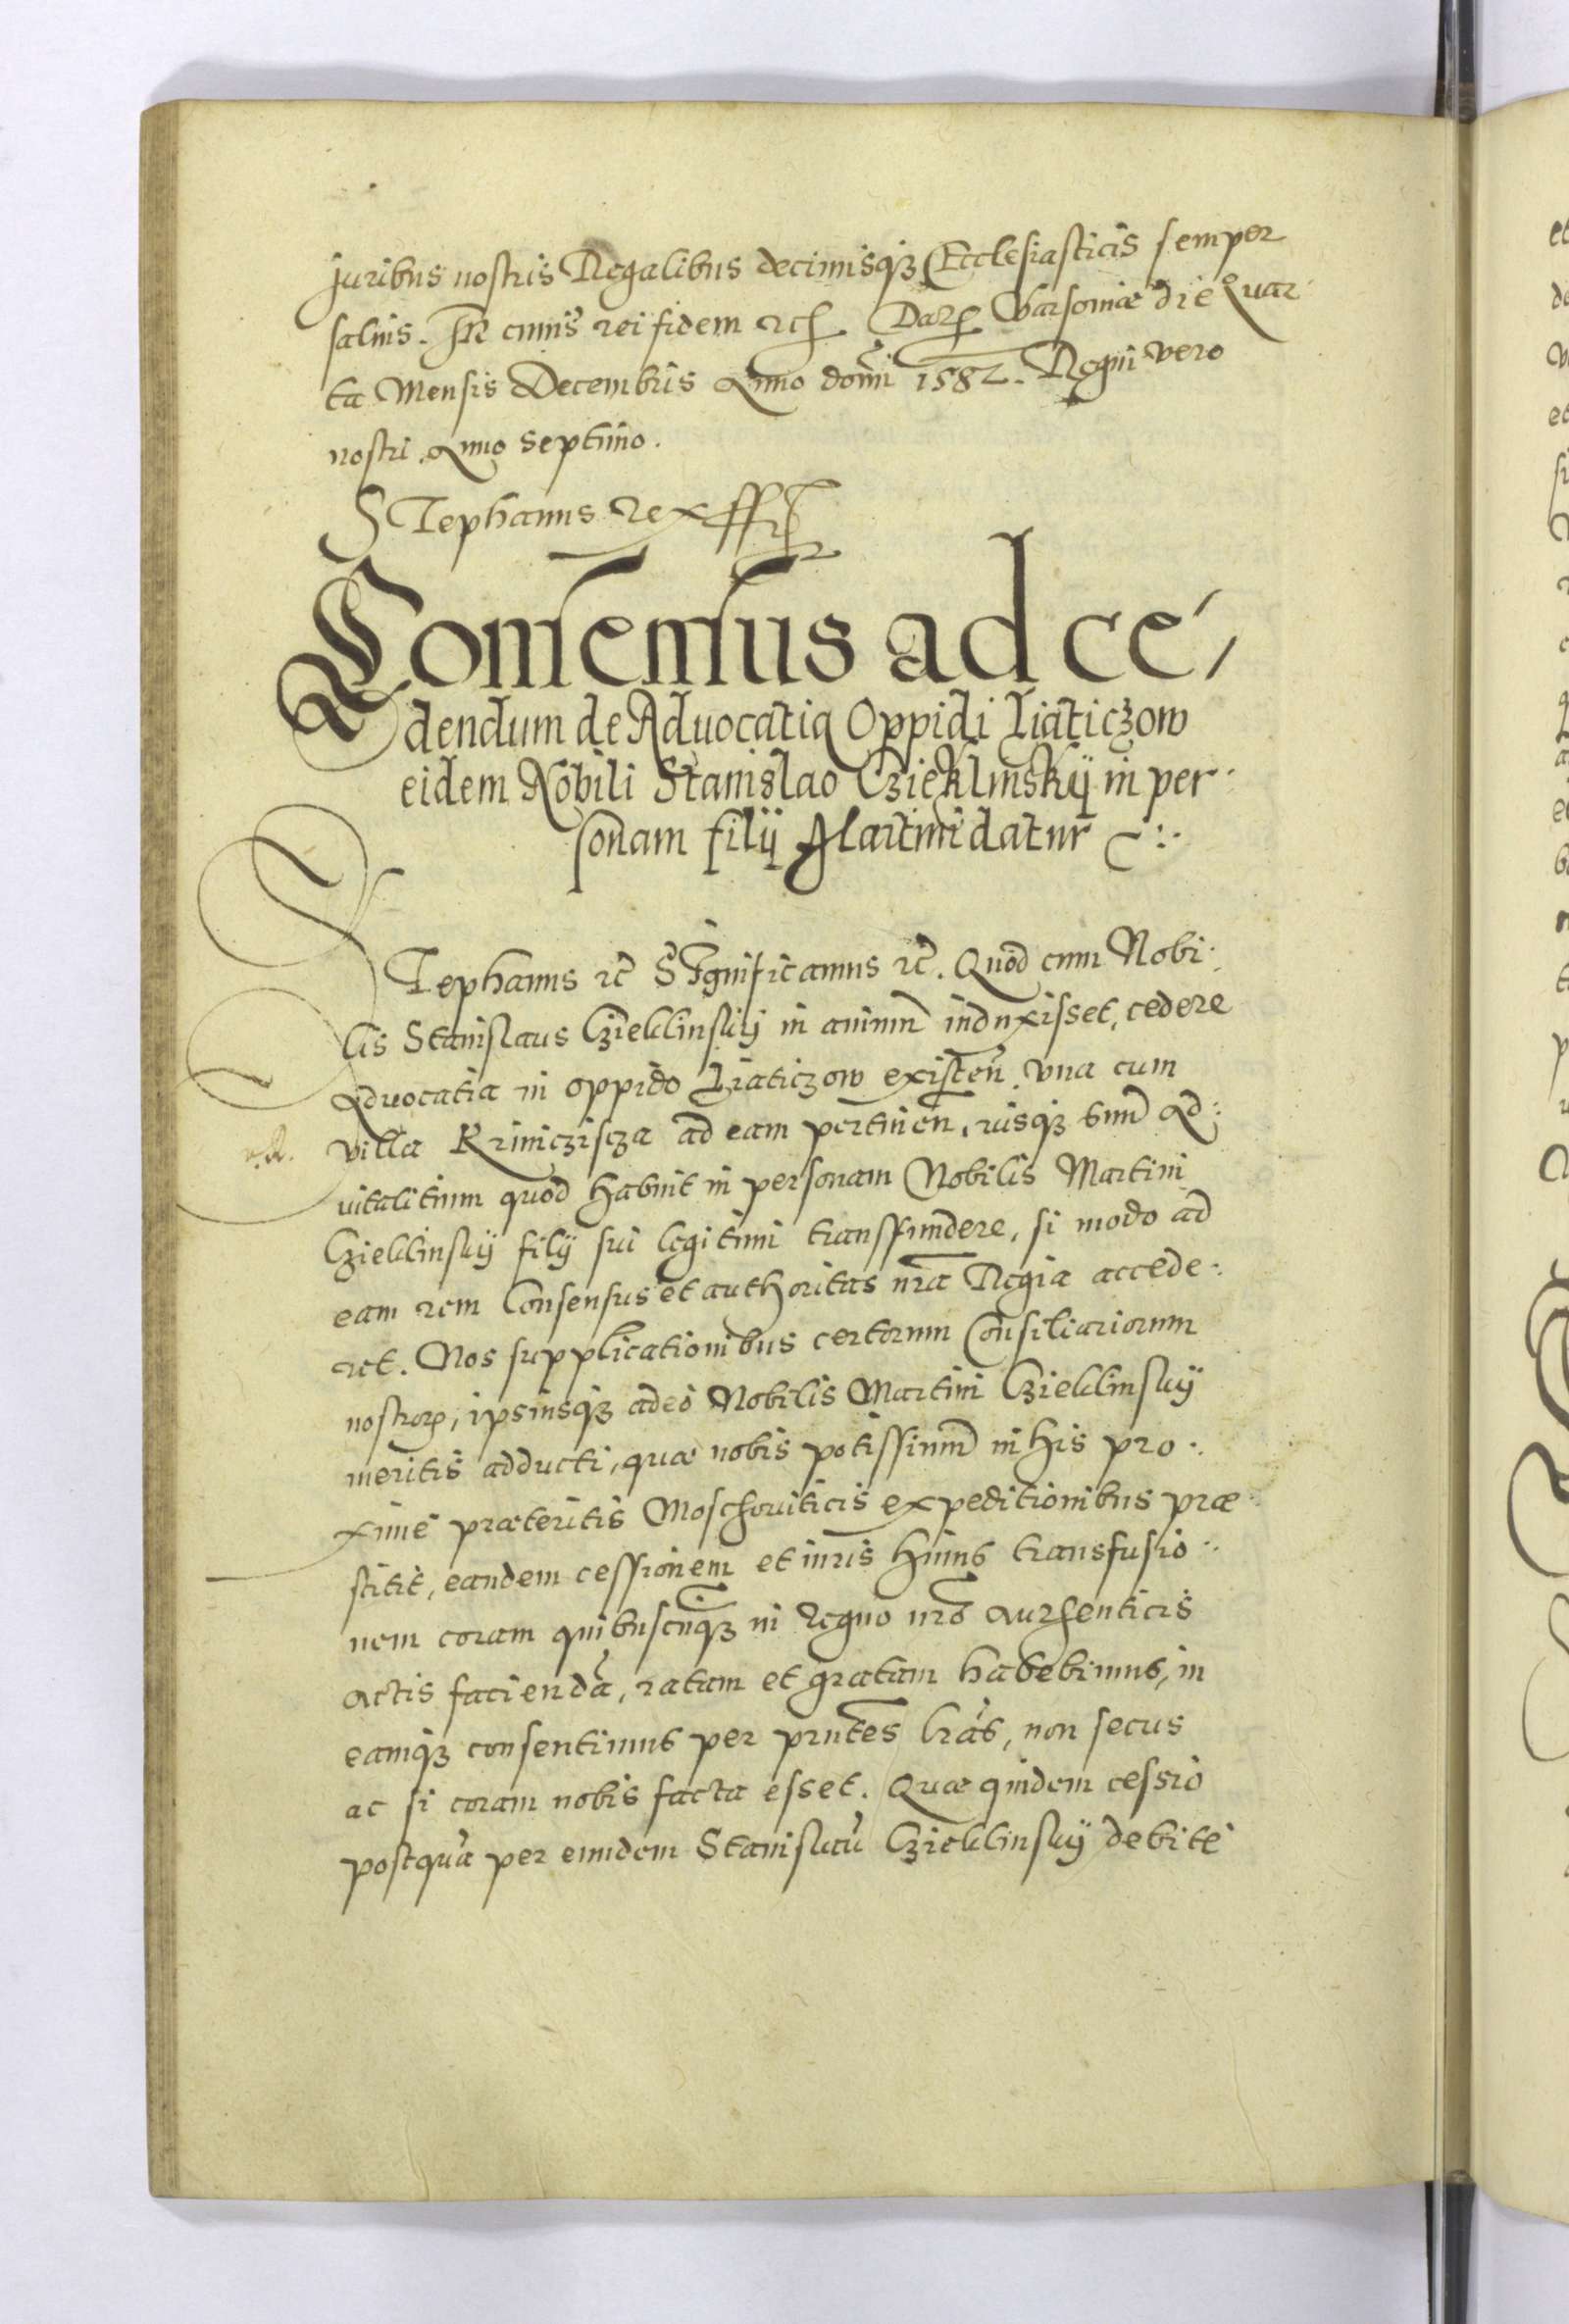 Juribus nostris Regalibus decimisq3 Ecclesiasticis semper
saluis. In cuius rei fidem etc. Dat. Varsouiæ die Quar
ta Mensis Decembris Anno domi 1582. Regni vero
nostri Anno Septimo.
STephanus Rex
Consensus ad ce,
dendum de Aduocatia Oppidi Liaticzow
eidem Nobili Stanislao Czieklinskÿ in per
sonam filÿ Martini datur
STephanus etc SIgnificamus etc. Quod cum Nobi
lis Stanislaus Czieklinskÿ in animũ induxisset, cedere
Aduocatia in oppido Liaticzow existeñ. vna cum
villa Kriniczisza ad eam pertineñ, iusq3 suũ Ad
vitalitium quod habuit in personam Nobilis Martini
Czieklinskÿ filÿ sui legitimi transfundere, si modo ad
eam rem Consensus et authoritas nr̃a Regia accede
ret. Nos supplicationibus certorum Consiliariorum
nostror, ipsiusq3 adeo Nobilis Martini Czieklinskÿ
meritis adducti, quæ nobis potissimũ in his pro
ximè præteritis Moschouiticis expeditionibus præ
stitit, eandem cessionem et iuris huius transfusio
nem coram quibuscũq3 in Regno nr̃o authenticis
actis faciendã, ratam et gratam habebimus, in
eamq3 consentimus per pñtes lr̃as, non secus
ac si coram nobis facta esset. Quæ quidem cessio
postquã per eundem Stanislaũ Czieklinskÿ debitè